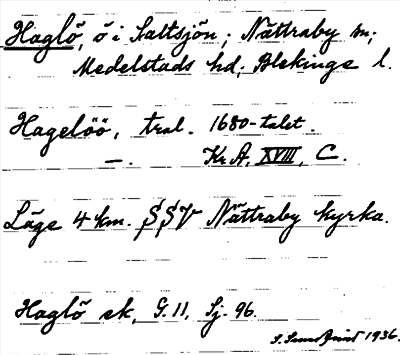 Haglö, ö i Saltsjön; Nättraby sn;
Medelstads hd; Blekinge l.
Hagelöö, tral. 1680-talet.
—. Kr. A, XVIII, C.
Läge 4 km. SSV Nättraby kyrka.
Haglö ek, G. 11, Sj. 96.
1936.